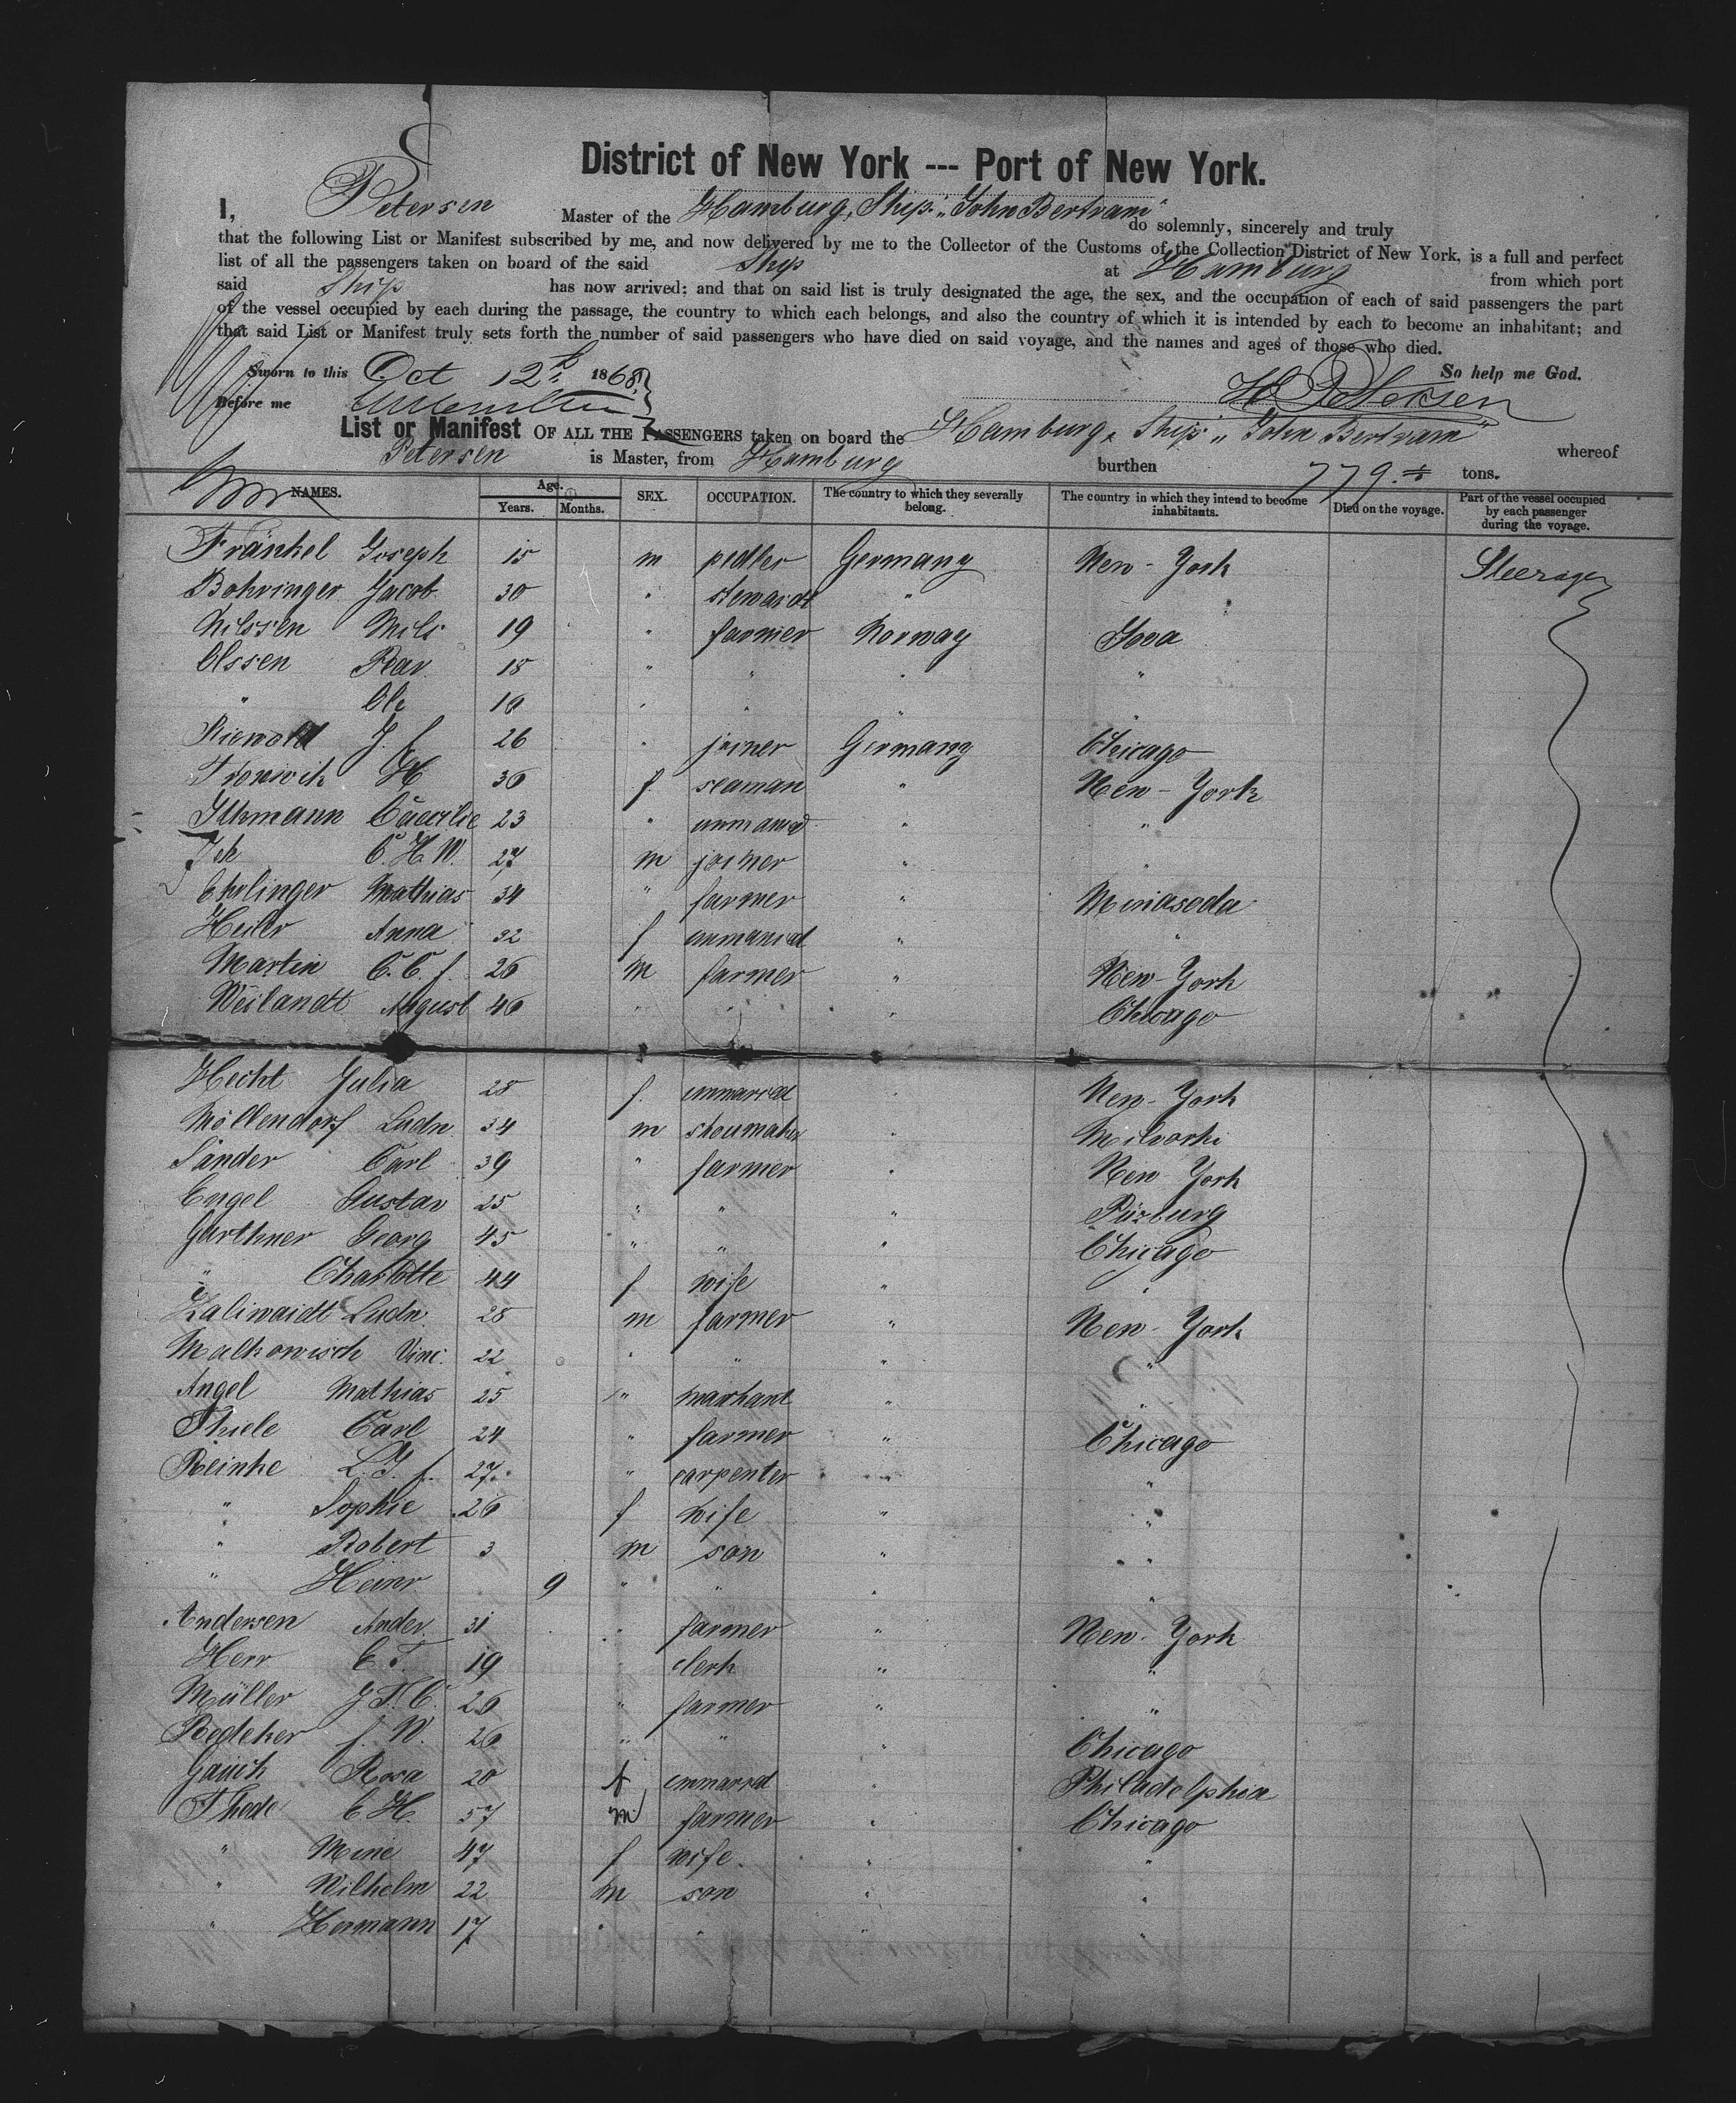 District of New York --- Port of New York.
I, Petersen Master of the Hamburg. Ship. „John Bertram“ do solemnly, sincerely and truly
that the following List or Manifest subscribed by me, and now delivered by me to the Collector of the Customs of the Collection District of New York, is a full and perfect
list of all the passengers taken on board of the said Ship at Hamburg from which port
said Ship has now arrived: and that on said list is truly designated the age, the sex, and the occupation of each of said passengers the part
of the vessel occupied by each during the passage, the country to which each belongs, and also the country of which it is intended by each to become an inhabitant; and
that said List or Manifest truly sets forth the number of said passengers who have died on said voyage, and the names and ages of those who died.
Sworn to this Oct 12th 1868. So help me God.
Before me H Petersen
List or Manifest OF ALL THE PASSENGERS taken on board the Hamburg. Ship „John Bertram“ whereof
Petersen is Master, from Hamburg burthen 779 tons.
NAMES. Age. Years. Months. SEX. OCCUPATION. The country to which they severally belong. The country in which they intend to become inhabitants. Died on the voyage. Part of the vessel occupied by each passenger during the voyage.
Fränkel Joseph 15 m pedler Germany New-York Steerage
Bohringer Jacob 30 " stewardt "
Nilssen Nils 19 " farmer Norway Jova
Olssen Pear 18 " " " "
" Ole 16 " " " "
Riewold J. f 26 " joiner Germany Chicago
H 36 f seaman " New-York
Caecilie 23 " unmaried " "
C. H. W. 27 m joiner " "
Ehrlinger Mathias 34 " farmer " Minasoda
Heiler Anna 32 f unmaried " "
Martin C. C. f. 26 m farmer " New-York
Weilandt August 46 " " " Chicago
Hecht Julia 28 f. unmaried " New-York
Möllendorf Ludw. 34 m shoumaker " Milvorki
Sander Carl 39 " farmer " New York
Engel Gustav 25 " " " Pürburg
Garthner Georg 45 " " " Chicago
" Charlotte 44 f wife " "
Kaliwaidt Ludw. 28 m farmer " New-York
Malkowisch Vinc. 22 " " " "
Angel Mathias 25 " marhant " "
Thiele Carl 24 " farmer " Chicago
Reinke L. J. f. 27 " carpenter " "
" Sophie 26 f wife " "
" Robert 3 m son " "
" Heinr 9 " " " "
Andersen Ander. 31 " farmer " New-York
Herr E T. 19 " clerk " "
Müller J F. C. 26 " farmer " "
Redeker f. W. 26 " " " Chicago
Rosa 20 f unmarrid " Philadelphia
Thede C H. 57 m farmer " Chicago
" Mine 47 f wife. " "
" Wilhelm 22 m son " "
" Hermann 17 " " " "